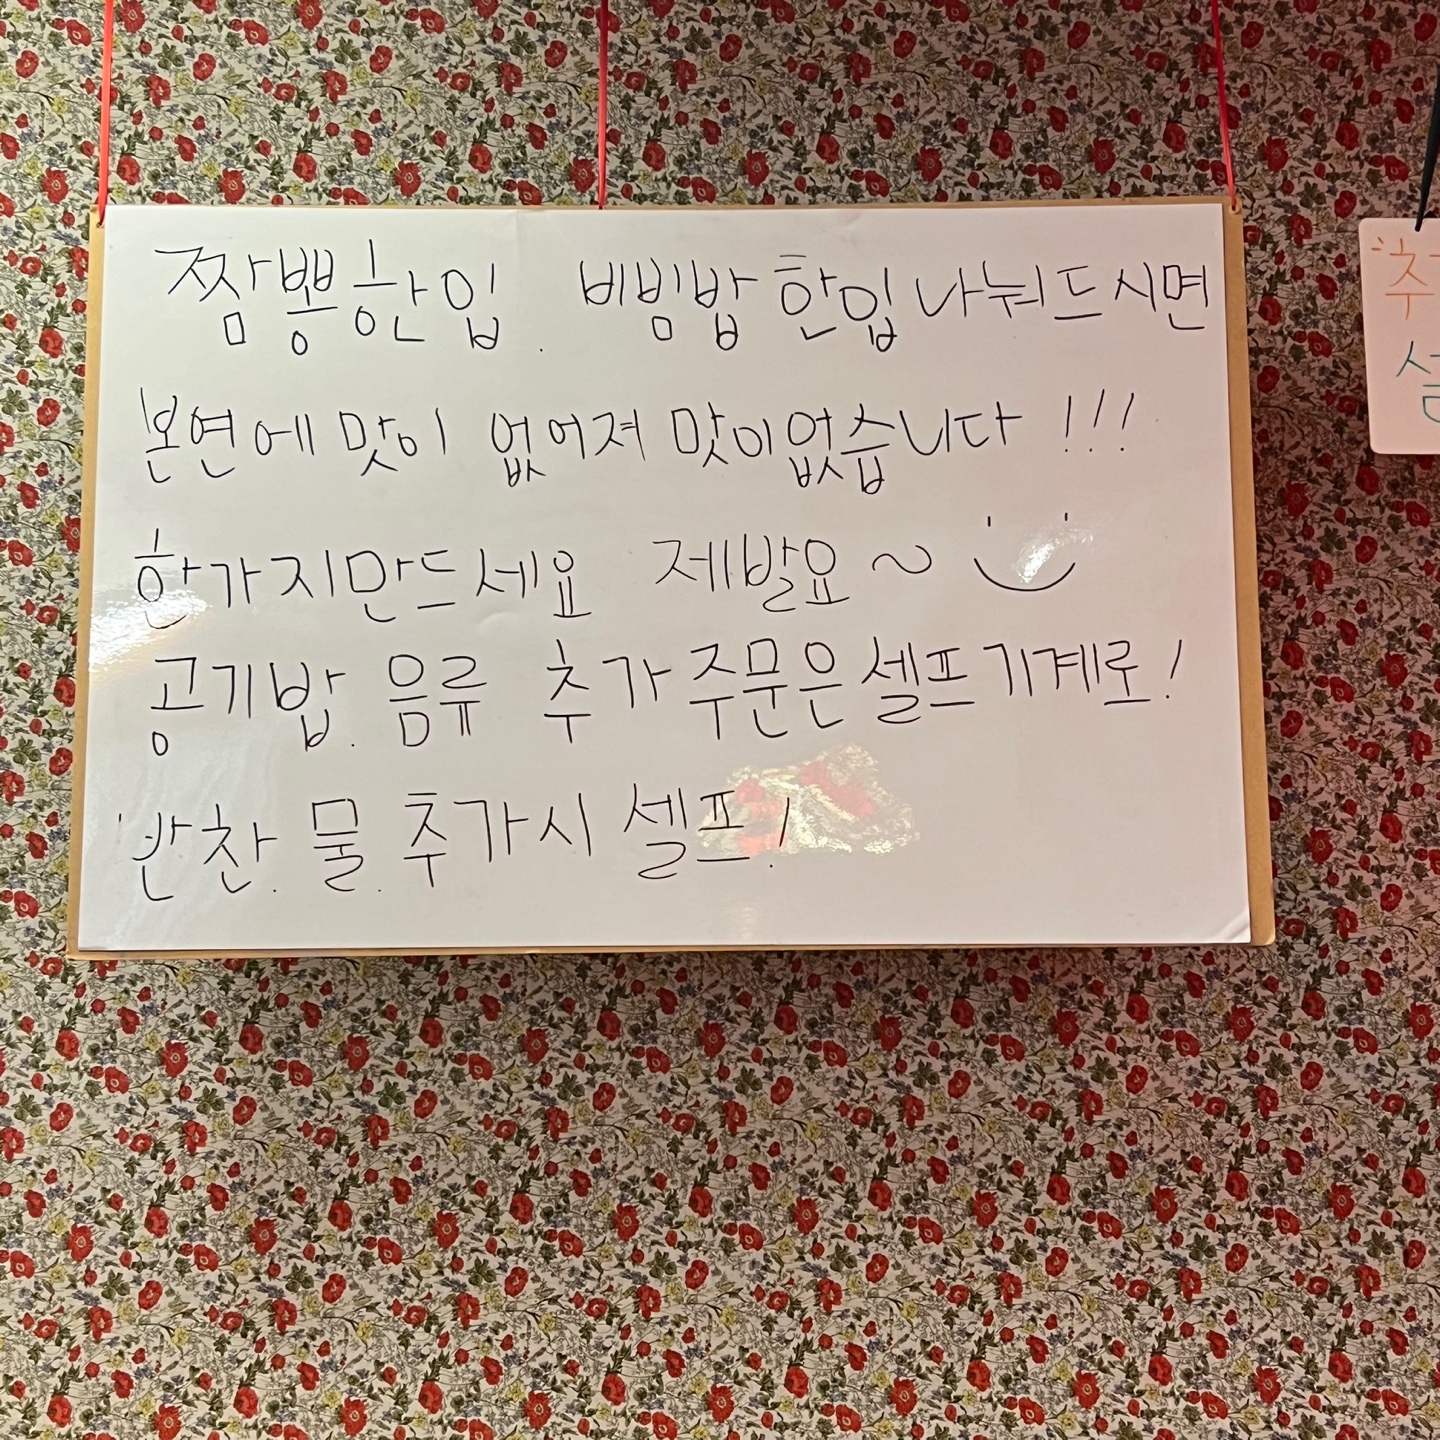 짬뽕한입. 비빔밥 한입 나눠드시면
본연에 맛이 없어져 맛이없습니다 !!!
한가지만드세요 제발요~
공기밥. 음류 추가 주문은 셀프기계로!
반찬. 물. 추가시 셀프!